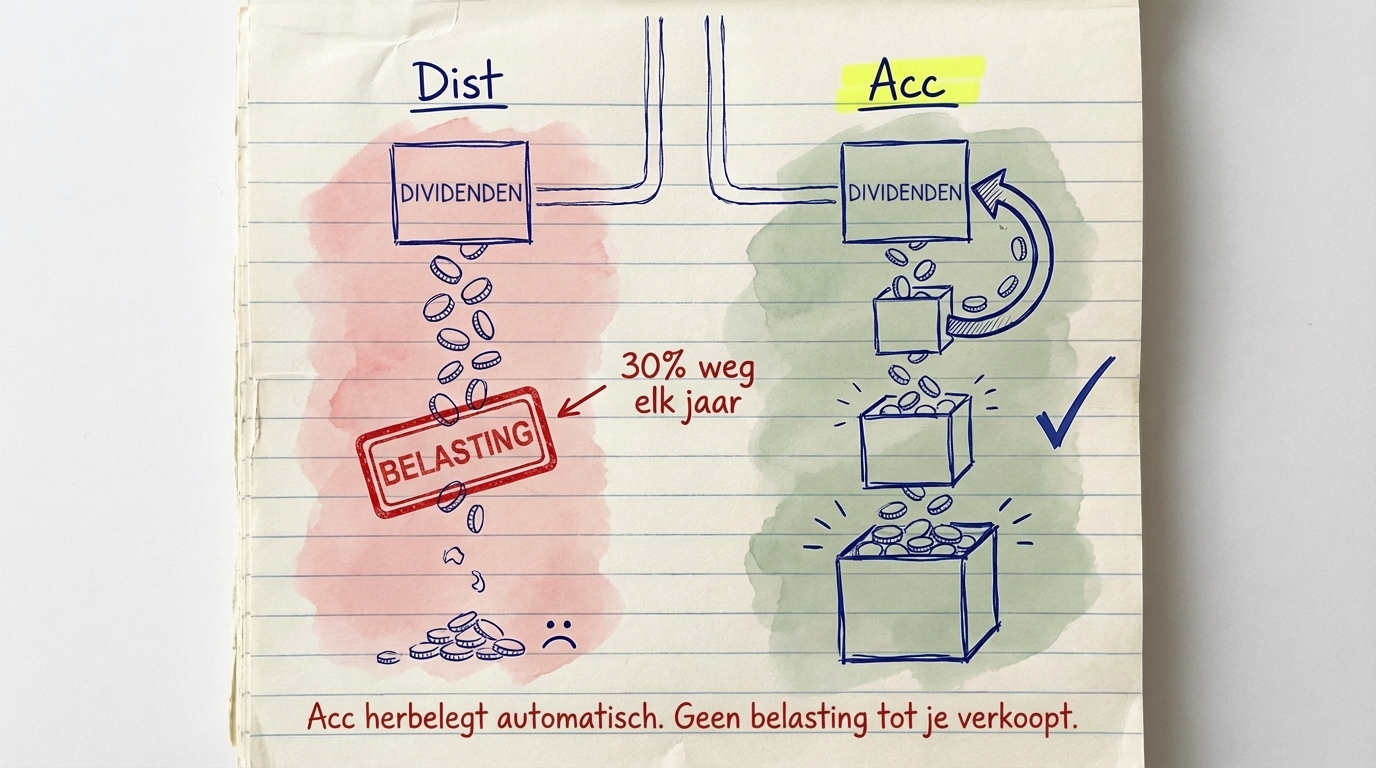 Dist
Acc
DIVIDENDEN
DIVIDENDEN
30% weg
elk jaar
BELASTING
Acc herbelegt automatisch. Geen belasting tot je verkoopt.